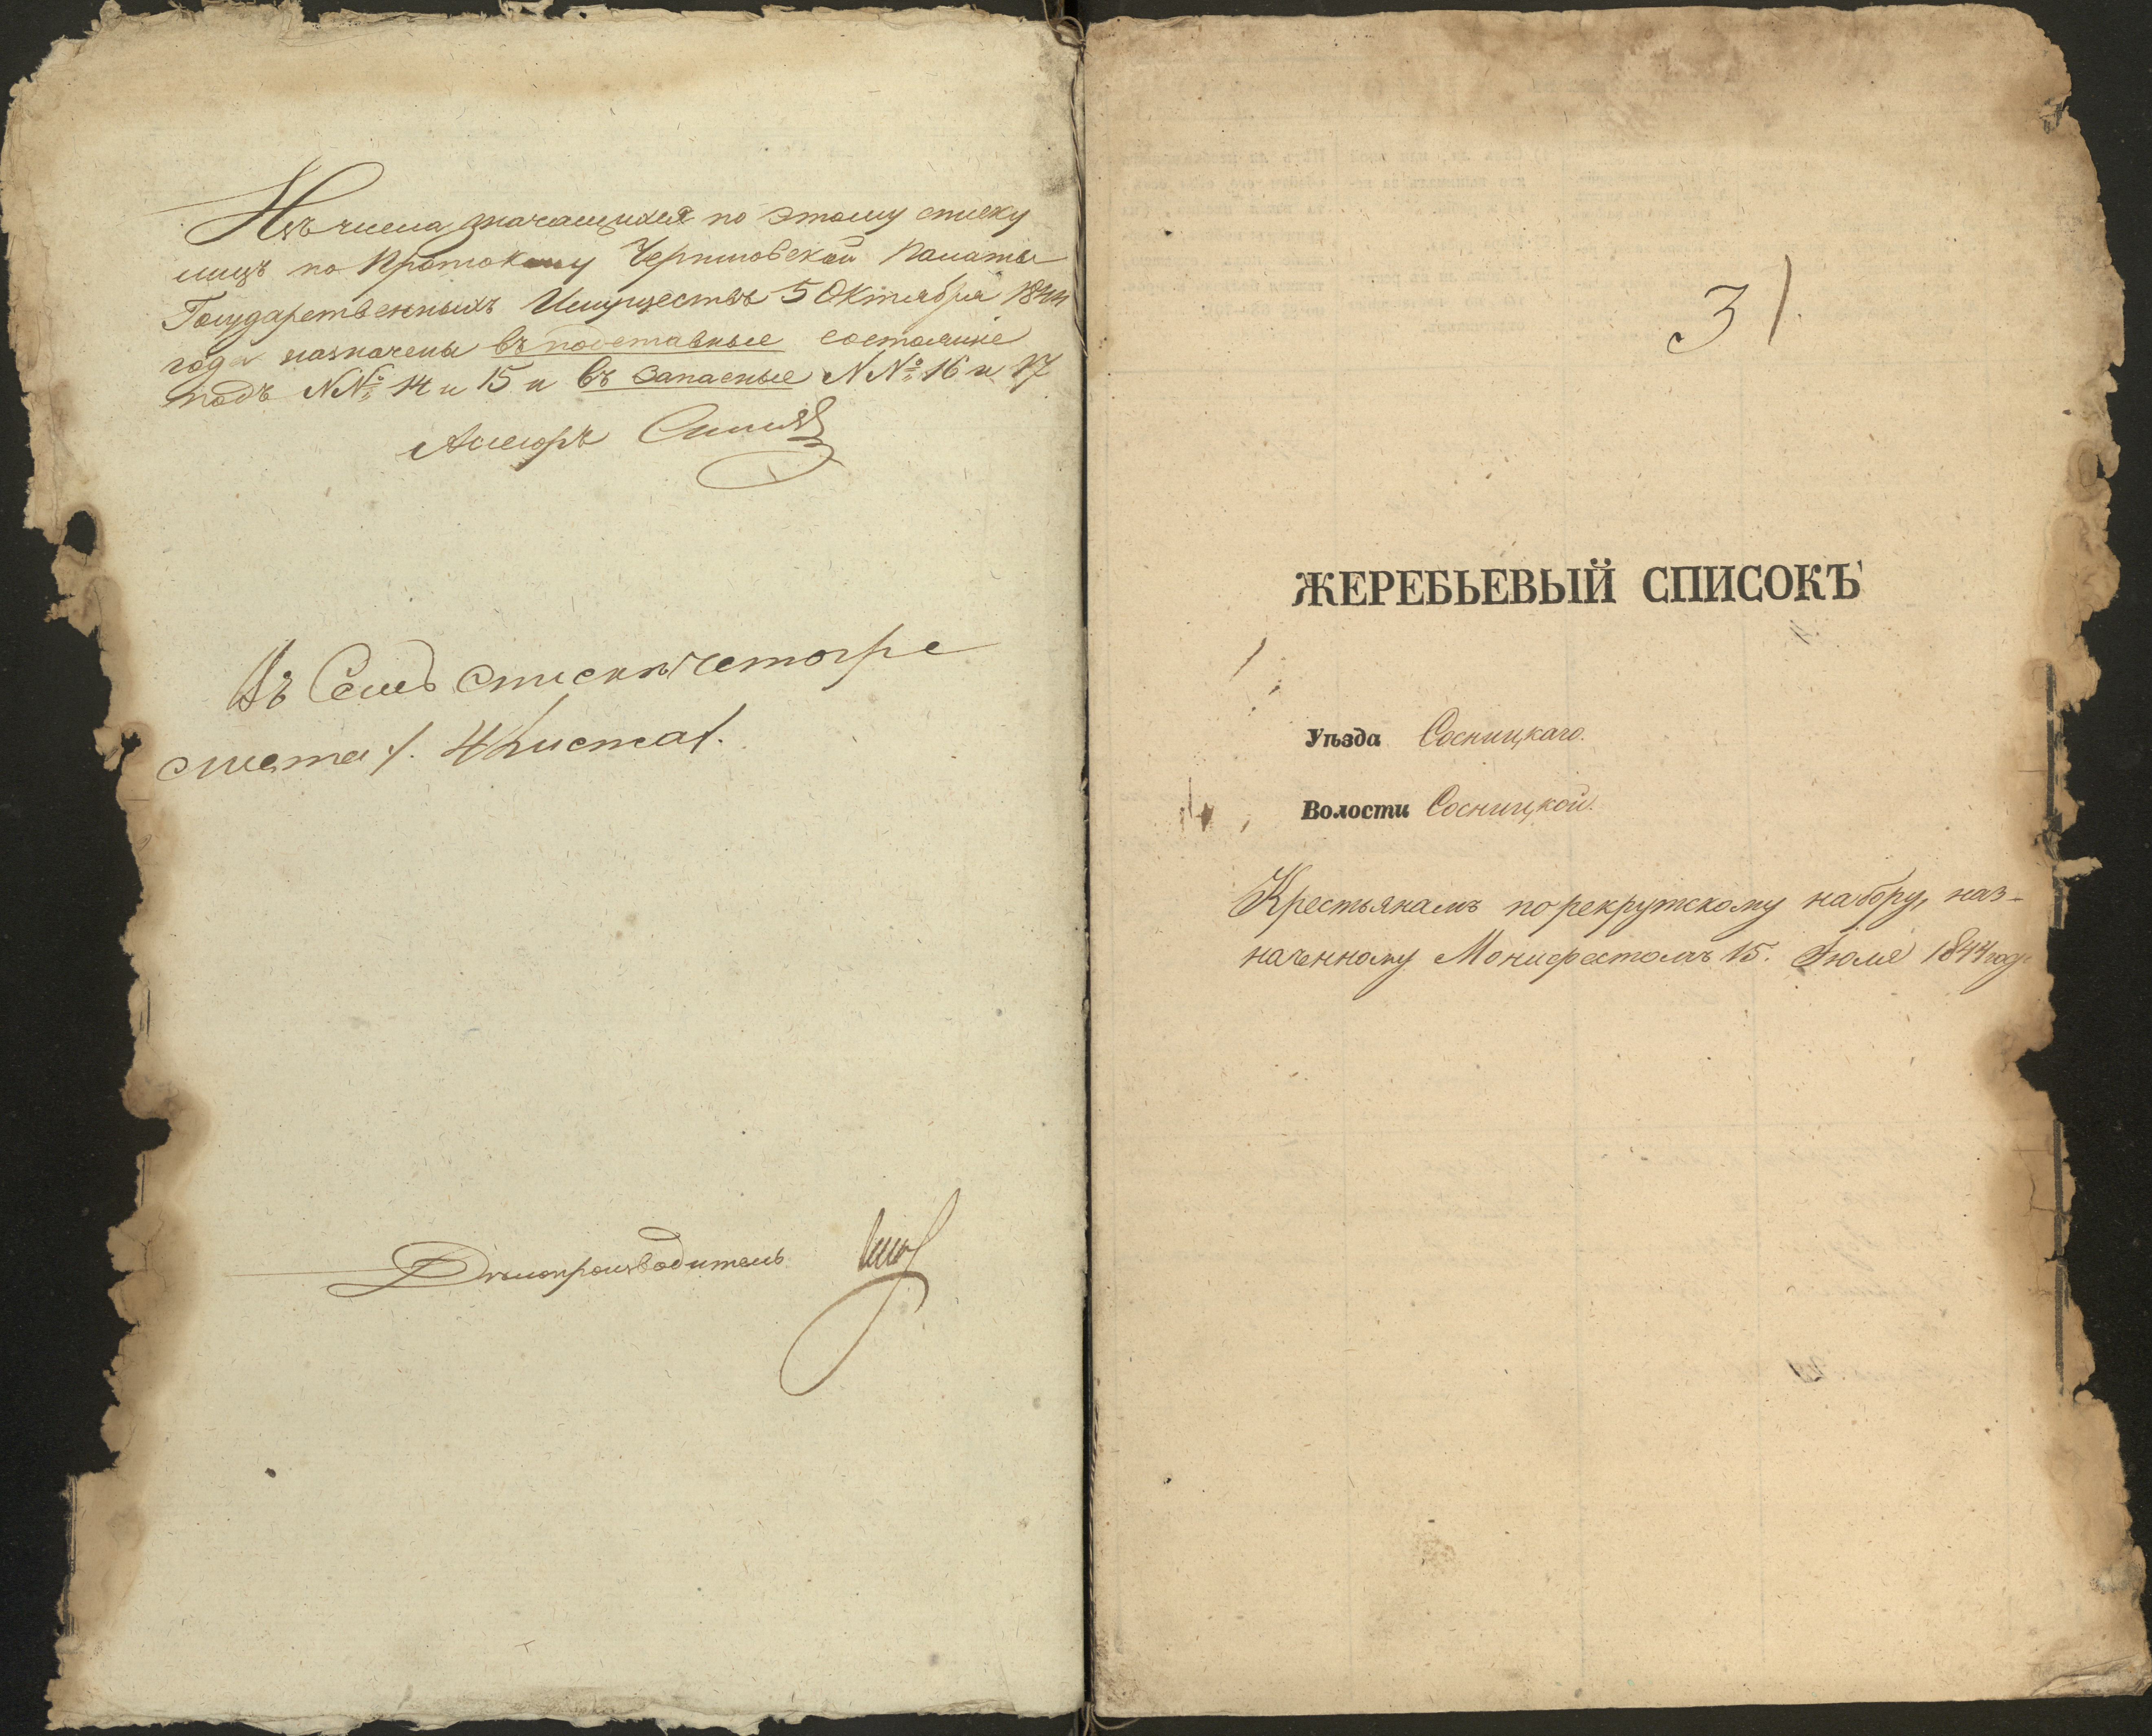 Изъ числа значащихся по этому списку
лицъ по Протоколу Черниговской Палаты
Государственныхъ Имуществъ 5 Октября 1844
года назначены въ подставные состоящіе
подъ NNº 14 и 15 и въ запасные NNº 16 и 17
Асесоръ
Въ Семъ списке четыре
листа /. 4 листа /.
Делопроизводитель
31.
ЖЕРЕБЬЕВЫЙ СПИСОКЪ
Уѣзда Сосницкаго.
Волости Сосницкой.
Крестьянамъ по рекрутскому набору, наз-
наченному Монифестомъ 15. Іюля 1844 года